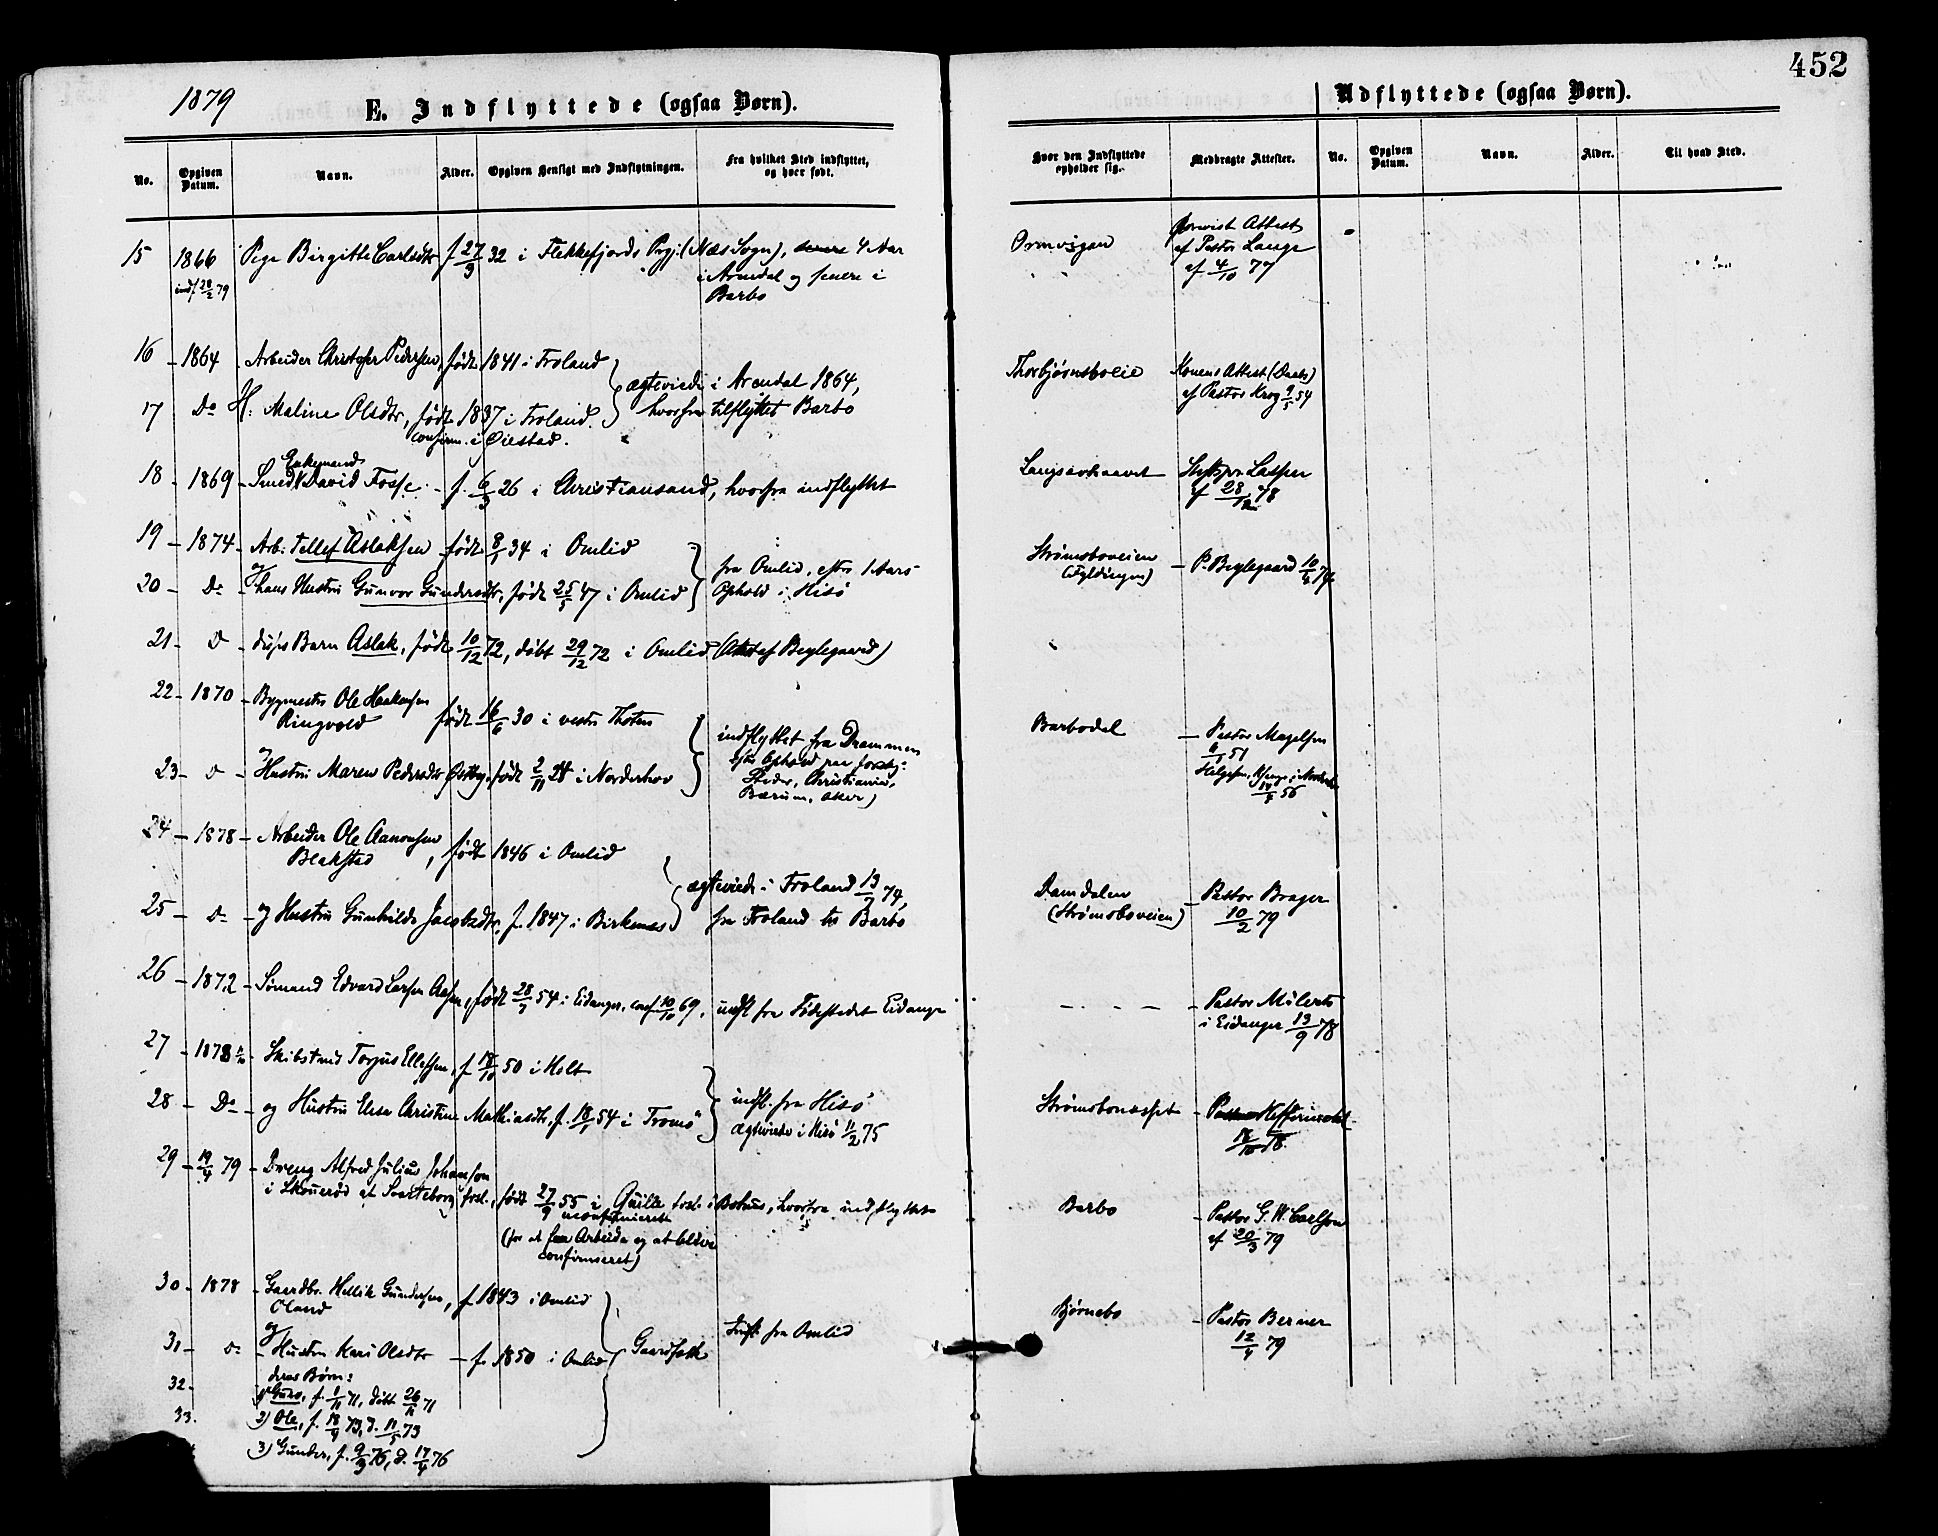 452
1879
E. Indflyttede (ogsaa Børn).
Udflyttede (ogsaa Børn).
No.
Opgiven Datum.
Navn.
Alder.
Opgiven Hensigt med Indflytningen.
Fra hvilket Sted indflyttet, og hvor født.
Hvor den Indflyttede opholder sig.
Medbragte Attester.
No.
Opgiven Datum.
Navn.
Alder.
Til hvad Sted.
15 1866 Pige Birgitte Carlsdtr f 27/9 32 i Flekkefjords Prgj. (Næs Sogn), 4 Aar
indf 28/2 79
i Arendal og senere i
Barbo
Ormvigen
Attest
af Pastor Lange
af 4/10 77
16 - 1864 Arbeider Christofer Pedersen, født 1841 i Froland
17 Do H: Maline Olsdtr, født 1837 i Froland.
confirm. i Øiestad.
ægteviede i Arendal 1864,
hvorfra tilflyttet Barbo
Thorbjørnsboeie
Konens Attest (Daabs)
af Pastor Krog 9/5 54
Enkemand
18 - 1869 - Smed David Fosse - f. 6/3 26 i Christiansand, hvorfra indflyttet
Langsævhaavet
28/12 78
19 - 1874 - Arb: Tellef Aslaksen født 8/1 34 i Omlid
og
20 - Do - hans Hustru Gunvor Gundersdtr, født 25/5 47 i Omlid
fra Omlid, efter 1 Aars
Ophold i Hisø
Strømsboveien
- P. Beglegaard 10/4 74
21 - D - disses Barn Aslak, født 10/12 72, døbt 29/12 72 i Omlid (Att af Beglegaard)
22 - 1870 - Bygmester Ole Haakensen
Ringvold født 16/6 30 i vestre Thoten
og
23 - D - Hustru Maren Pedersdtr Østby, født 2/11 24 i Norderhov
indflyttet fra Drammen
efter Ophold paa forskj:
Steder, Christiania,
Bærum, Aker)
Barbodal
- Pastor Magelsen
6/1 51
14/4 56
24 - 1878 - Arbeider Ole Aanonsen
Blakstad, født 1846 i Omlid
25 - D - og Hustru Gunhilde Jacobsdtr, f. 1847 i Birkenes
ægteviede i Froland
fra Froland til Barbo
Damdalen
(Strømsboveien)
- Pastor Brager
10/2 79
26 - 1872 - Sømand Edvard Larsen Aasen, født 28/7 54 i Eidanger, conf 10/10 69, indfl fra Fødestedet Eidanger
- - - -
- Pastor Milertz
i Eidanger 13/9 78
27 - 1878 - Skibstmd Torjus Ellefsen, f 18/10 50 i Holt
28 - Do - og Hustru Elise Christine Mathiasdtr, f. 18/1 54 i Tromø
indfl. fra Hisø
ægteviede i Hisø 11/2 75
Strømsbonæsset
- Pastor
18/10 78
29 - 19/4 79 - Dreng Alfred Julius Johanson
i Skouerød at Svarteborg, født 27/9 55 i Quille i Bohus, hvorfra indflyttet
(for at faa Arbeide og at blive
confirmeret)
Barbo
- Pastor G. W. Carlson
af 20/3 79
30 - 1878 - Gaardbr. Hellik Gundersen, f 1843 i Omlid
Oland
og
31 - D - Hustru Kari Olsdtr - f. 1850 i Omlid
Gaardfolk
Indfl. fra Omlid
Bjørnebo
- Pastor Berner
12/4 79
deres Børn:
32. 1) Guro, f. 1/11 71, døbt 26/11 71
33. 2) Ole, f. 18/4 73, d. 11/5 73
3) Gunder, f. 9/3 76, d. 17/4 76